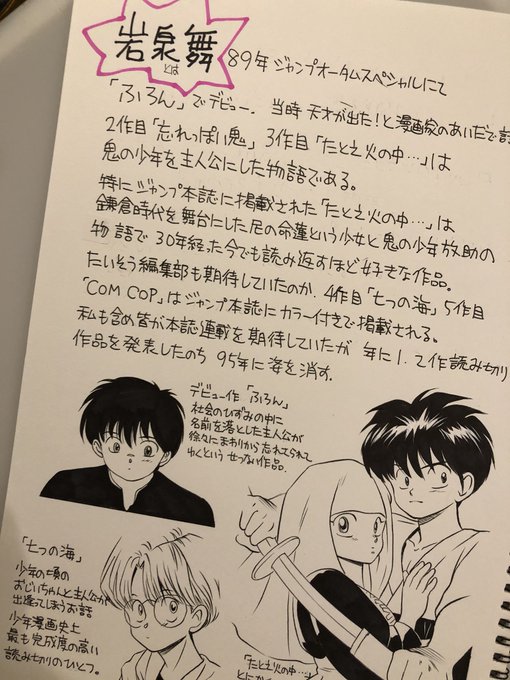 岩泉舞
とは
89年ジャンプオータムスペシャルにて
「ふろん」でデビュー。当時天才が出た!と漫画家のあいだで
2作目「忘れっぽい鬼」3作目「たとえ火の中…」は
鬼の少年を主人公にした物語である。
特にジャンプ本誌に掲載された「たとえ火の中…」は
鎌倉時代を舞台にした足の命蓮という少女と鬼の少年放助の
物語で30年経った今でも読み返すほど好きな作品。
たいそう編集部も期待していたのか、4作目「七つの海」5作目
「COM COP」はジャンプ本誌にカラー付きで掲載される。
私も含め皆が本誌連載を期待していたが年に1、2作読み切り
作品を発表したのち95年に姿を消す。
デビュー作「ふろん」
社会のひずみの中に
名前を落とした主人公が
徐々にまわりから忘れてられて
ゆくというせつない作品。
「七つの海」
少年の頃の
おじいちゃんと主人公が
出逢ってしまうお話
少年漫画史上
最も完成度の高い
読み切りのひとつ。
「たとえ火の中…」